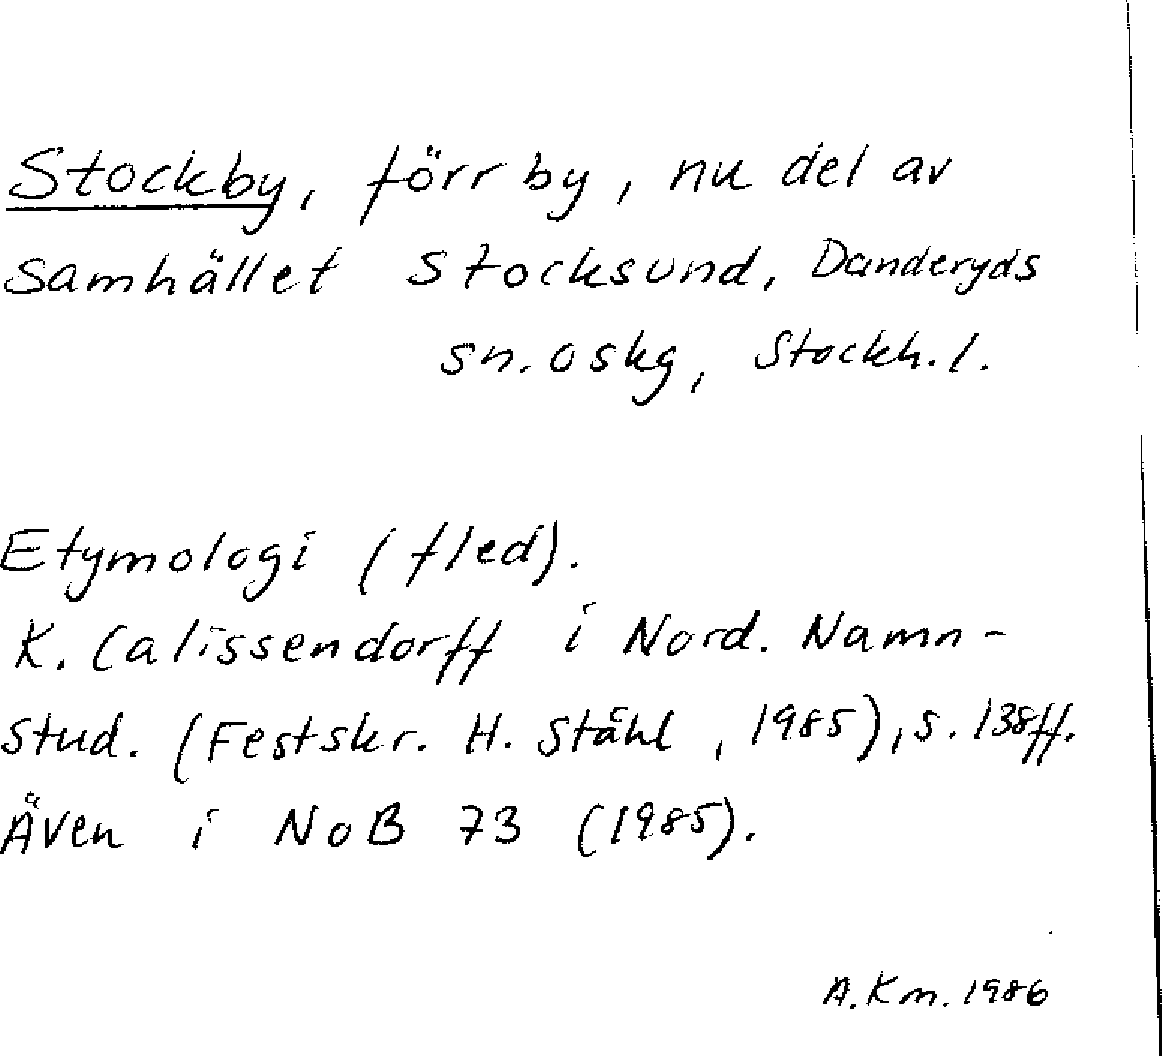 Stockby, förr by, nu del av
samhället Stocksund, Danderyds
sn. o skg, Stockh. l.
Etymologi (fled).
K. Calissendorff i Nord. Namn-
Stud. (Festskr. H. Ståhl, 1985), s. 138ff.
Även i NoB 73 (1985).
A. Km. 1986